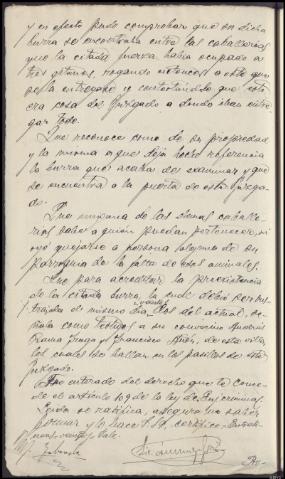 y en efecto pudo comprobar que en dicha
burra se encontraba entre las caballerias
que la citada fuerza habia ocupado a
tres gitanos, rogando entonces a este que
se la entregase y contestandole que esto
era cosa del Juzgado a donde iban entre-
gar todo.
Que reconoce como de su propiedad
y la misma a que deja hecha referencia
la burra que acaba de examinar y que
se encuentra a la puerta de este Juzga-
do.
Que ninguna de las demas caballe-
rias sabe a quien puedan pertenecer, ni
oyó quejarse a persona alguna de su
parroquia de la falta de esos animales.
Que para acreditar la preexistencia
de la citada burra, la cual debio ser sus-
traida el mismo dia dos del actual, se-
ñala como testigos a su convecino Andrés
y Francisco de esta villa
los cuales se hallan en los pasillos de este
Juzgado.
Que enterado del derecho que le conce-
de el articulo 109 de la ley de Enj. criminal
Leida se ratifica, asegura no saber
firmar y lo hace S.S. certifico.
vale.